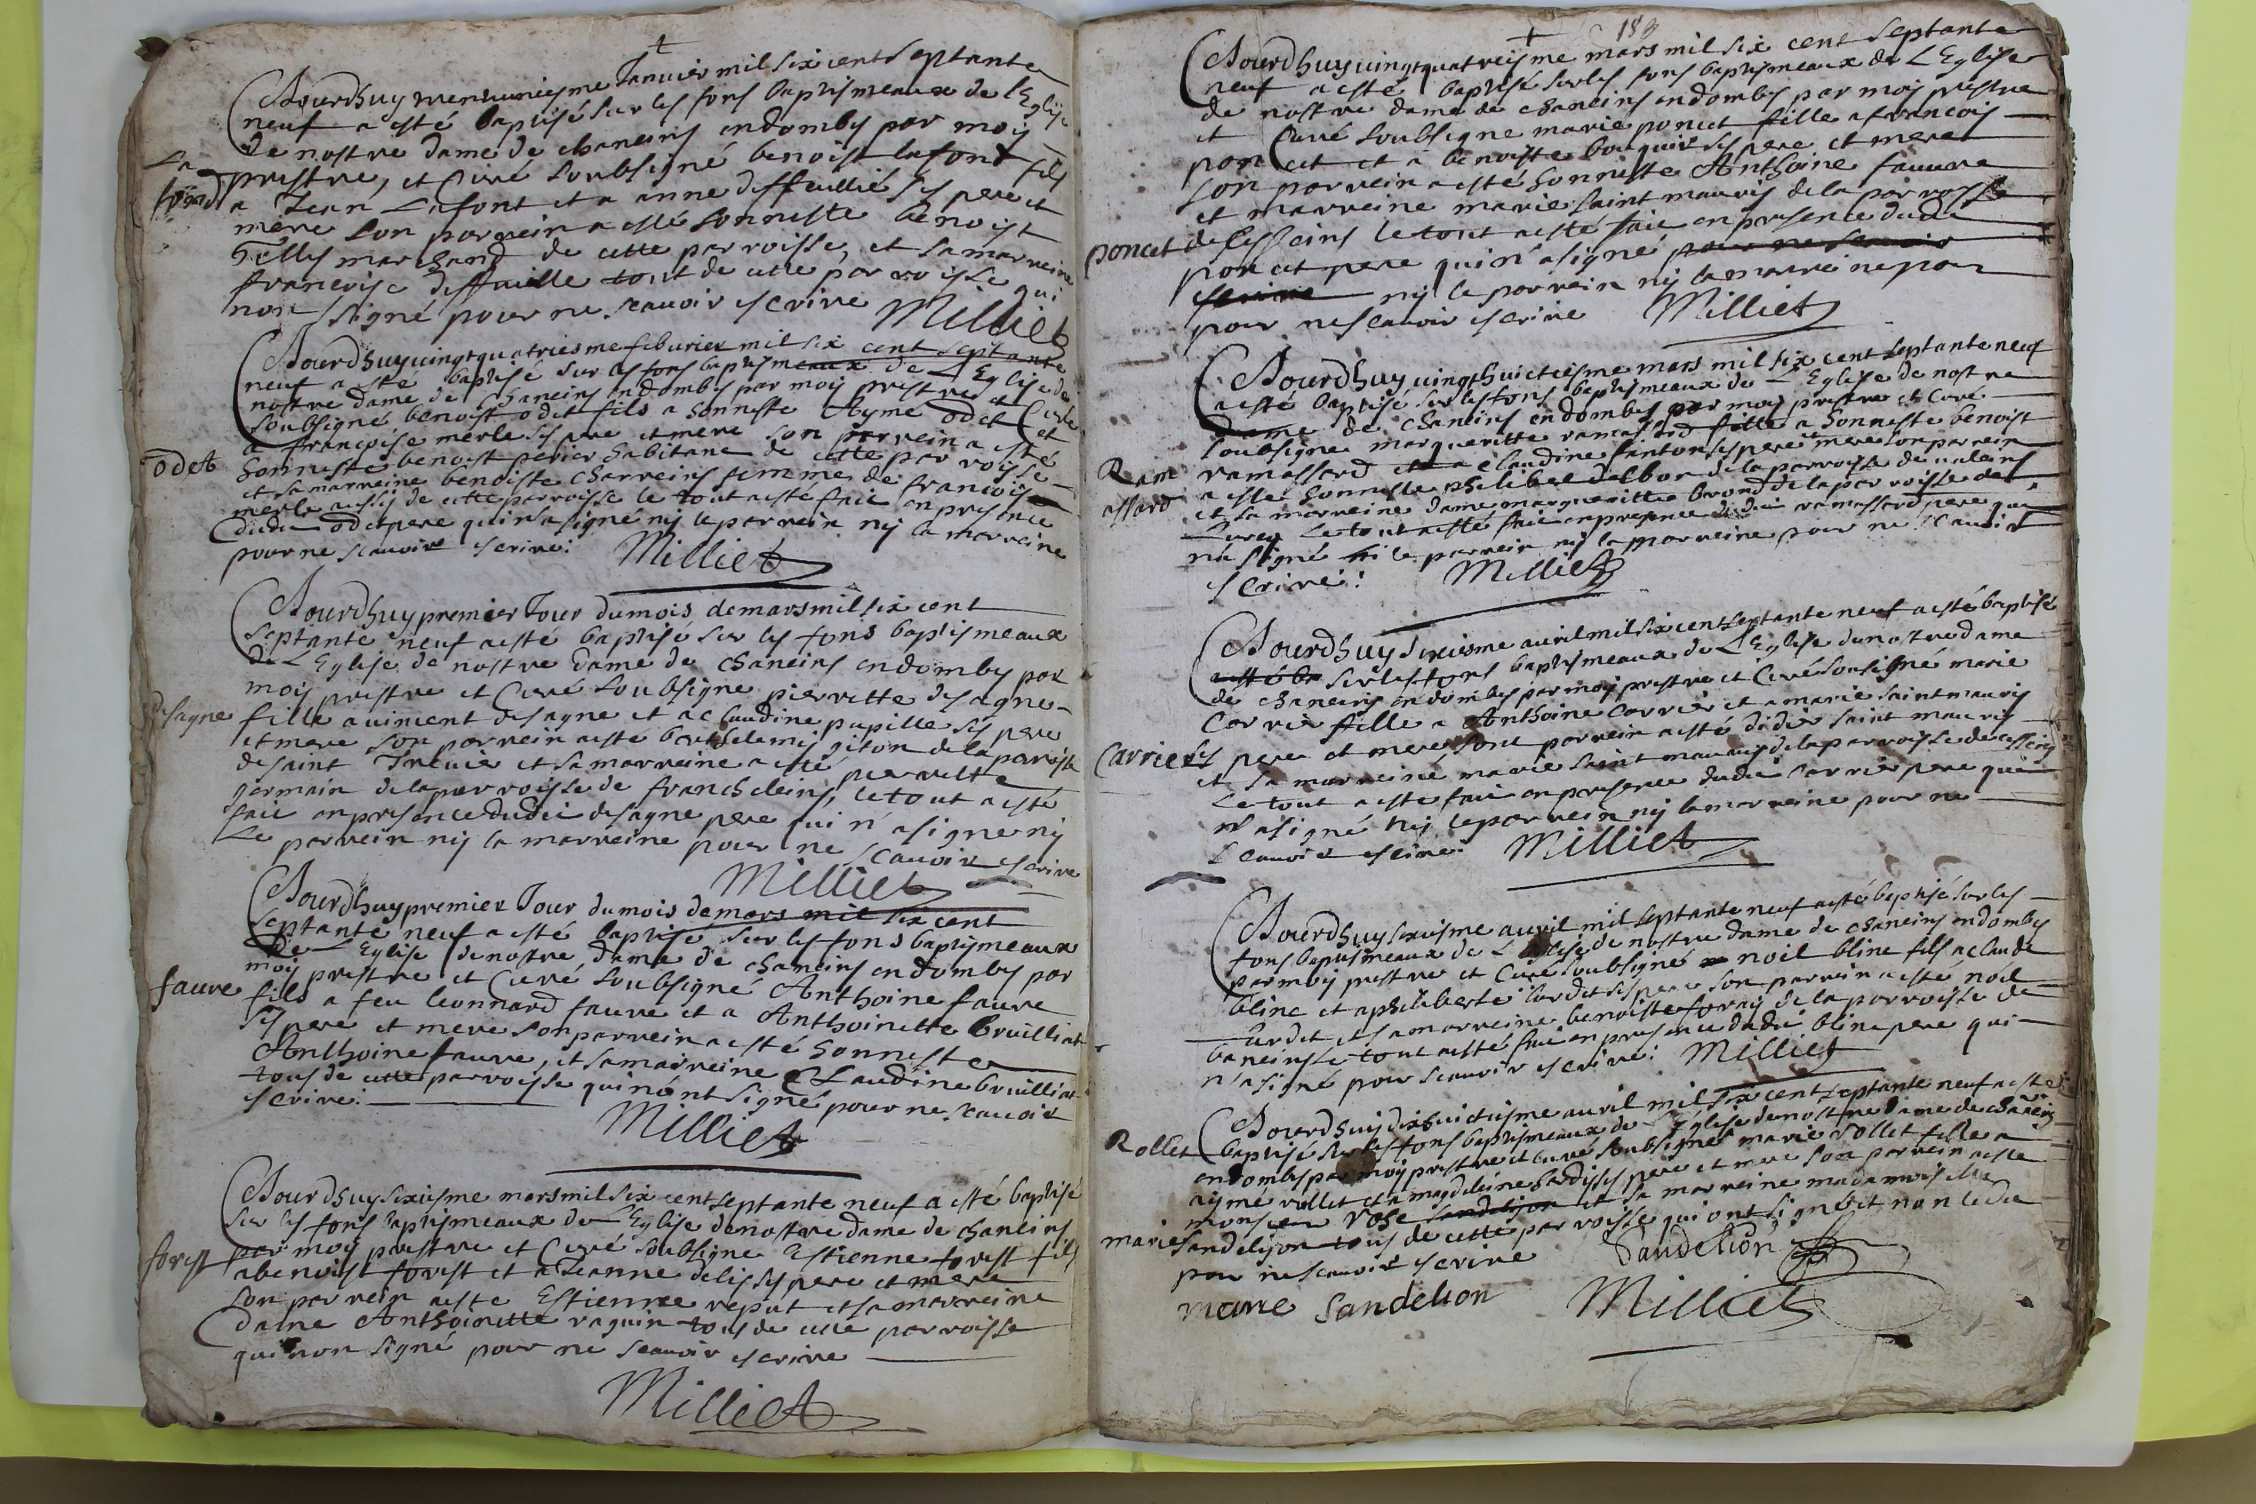 Aourdhuy Janvier mil six cents septante
neuf a esté baptisé sur les fons baptismeaux de l'Eglise
de nostre dame de chaneins en dombes par moy
prestre, et Curé soubsigné benoist lafont fils
La font
a Jean Lafont et a anne deffeuillié ses pere et
mere son parrein a esté honneste benoist
marchand de cette parroisse, et sa marreine
francoise deffeuille tout de cette parroisse qui
non signé pour ne scauoir escrire Milliet
Aourdhuy uingtquatriesme feburier mil six cent septante
neuf a esté baptisé sur les fons baptismeaux de L'Eglise de
nostre dame de Chaneins en dombes par moy prestre et Curé
soubsigné benoist odet fils a honneste Ayme odet et
a françoise merle ses pere et mere son parrein a esté
odet
honneste benoist perier habitant de cette parroisse
et sa marreine benoiste Charreins femme de francois
merle aussy de cette parroisse le tout a esté faict en presence
dudict odet pere qui n'a signé nij le parrein nij la marreine
pour ne scauoir escrire: Milliet
Aourdhuy premier Jour du mois de mars mil six cent
septante neuf a esté baptisé sur les fons baptismeaux
de L'Eglise de nostre dame de chaneins en dombes par
moy prestre et Curé soubsigné pierrette desagne
desagne
fille a uincent desagne et a claudine pupille ses pere
et mere son parrein a esté barthelemij giton de la parroisse
de saint Triuier et sa marreine a esté pierrette
germain de la parroisse de francheleins, le tout a esté
faict en presence dudict desagne pere qui n'a signé nij
Le parrein nij la marreine pour ne scauoir escrire
Milliet
Aourdhuy premier Jour du mois de mars mil six cent
septante neuf a esté baptisé sur les fons baptismeaux
de L'Eglise de nostre dame de chaneins en dombes par
moy prestre et Curé soubsigné Anthoine faure
faure
fils a feu leonnard faure et a Anthoinette bruilliat
ses pere et mere son parrein a esté honneste
Anthoine faure, et sa marreine Claudine bruilliat
tous de cette parroisse qui n'ont signé pour ne scauoir
escrire.
Milliet
Aourdhuy sixiesme mars mil six cent septante neuf a esté baptisé
sur les fons baptismeaux de L'Eglise de nostre dame de chaneins
par moy prestre et Curé soubsigné Estienne forest fils
forest
a benoist forest et a Jeanne delis ses pere et mere
son parrein a esté Estienne reput et sa marreine
dame Anthoinette raguin tous de cette parroisse
qui non signé pour ne scauoir escrire
Milliet
183
Aourdhuy uingtquatriesme mars mil six cent septante
neuf a esté baptisé sur les fons baptismeaux de L'Eglise
de nostre dame de chaneins en dombes par moy prestre
et Curé soubsigné marie poncet fille a francois
poncet et a benoiste ses pere et mere
son parrein a esté honneste Anthoine fauure
et marreine marie saint mauris de la parroisse
poncet
de Cesseins le tout a esté faict en presence dudit
poncet pere qui n'a signé pour ne scauoir
escrire nij le parrein nij la marreine pour
pour ne scauoir escrire Milliet
Aourdhuy uingthuictiesme mars mil six cent septante neuf
a esté baptisé sur les fons baptismeaux de L'Eglise de nostre
dame de Chaneins en dombes par moy prestre et Curé
soubsigné margueritte ramassard fille a honneste benoist
Ramassard
ramassard et a claudine fanton ses pere et mere son parrein
a esté honneste philibert dalbon de la parroisse de ualeins
et sa marreine dame margueritte brond de la parroisse de
Lurcy le tout a esté faict en presence dudict ramassard pere qui
na signé ni le parrein nij la marreine pour ne scauoir
escrire: Milliet
Aourdhuy sixiesme auril mil six cent septante neuf a esté baptisé
sur les fons baptismeaux de L'Eglise de nostre dame
de chaneins en dombes par moy prestre et Curé sousigné marie
Carrier fille a Anthoine Carrier et a marie saint mauris
Carrier
ses pere et mere, sont parrein a esté didier saint mauris
et sa marreine marie saint mauris de la parroisse de cesseins
Le tout a esté faict en presence dudict Carrier pere qui
n'a signé nij le parrein nij la marreine pour ne
scauoir escrire: Milliet
Aourdhuy sixiesme auril mil septante neuf a esté baptisé sur les
fons baptismeaux de L'Eglise de nostre dame de chaneins en dombes
par moy prestre et Curé soubsigné noil bline fils a claude
bline et a philiberte lurdit ses pere son parrein a esté noil
Lurdit et sa marreine benoiste foraij de la parroisse de
baneins le tout a esté faict en presence dudict bline pere qui
n'a signé pour scauoir escrire: Milliet
Aourdhuij dixhuictiesme auril mil six cent septante neuf a esté
Rollet
baptisé sur les fons baptismeaux de L'Eglise de nostre dame de chaneins
en dombes par moy prestre et curé soubsigné marie rollet fille a
ayme rollet et a magdeleine bardis ses pere et mere son parrein a esté
monsieur rose sandelyon et sa marreine madamoiselle
marie
sandelyon tous de cette parroisse qui ont signé et non ledict
pour ne scauoir escrire Sandelion
marie Sandelion Milliet